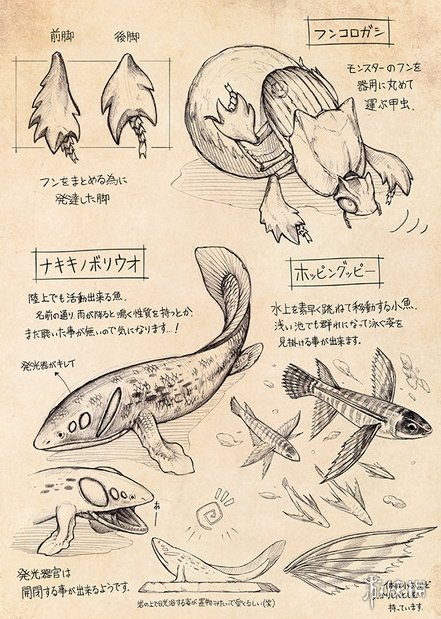 前脚
後脚
フンをまとめる為に
発達した脚
フンコロガシ
モンスターのフンを
器用に丸めて
運ぶ甲虫.
ナキキノボリウオ
陸上でも活動出来る魚.
名前の通り、雨が降ると鳴く性質を持つとか.
まだ聴いた事が無いので気になります…!
発光器がキレイ
ホッピングッピー
水上を素早く跳ねて移動する小魚.
浅い池でも群れになって泳ぐ姿を
見掛ける事が出来ます.
あ
発光器官は
開閉する事が出来るようです.
岩の上で日光浴する姿が置物みたいで愛くるしい(笑)
持っています.